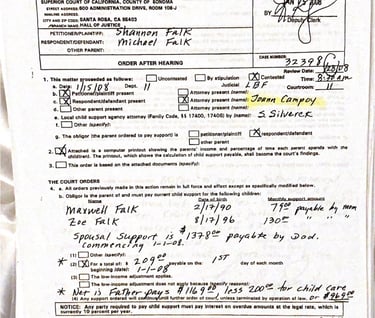 SUPERIOR COURT OF CALIFORNIA, COUNTY OF SONOMA
STREET ADDRESS: 600 ADMINISTRATION DRIVE, ROOM 106-J
MAILING ADDRESS:
CITY AND ZIP CODE: SANTA ROSA, CA 95403
BRANCH NAME: HALL OF JUSTICE
BY
Deputy Clerk
PETITIONER/PLAINTIFF: Shannon Falk
RESPONDENT/DEFENDANT: Michael Falk
OTHER PARENT:
ORDER AFTER HEARING
CASE NUMBER:
Review Date:
Time: 8:30 am
Courtroom: 11
1. This matter proceeded as follows: Uncontested By stipulation X Contested
a. Date: 1/15/08 Dept. 11 Judicial LBF
b. X Petitioner/plaintiff present Attorney present (name):
c. X Respondent/defendant present Attorney present (name): Joann Campoy
d. Other parent present Attorney present (name):
e. Local child support attorney (Family Code, §§ 17400, 17406) by (name): S. Silverek
f. Other (specify):
g. The obligor (the parent ordered to pay support) is petitioner/plaintiff X respondent/defendant
other parent
2. X Attached is a computer printout showing the parents' income and percentage of time each parent spends with the
child(ren). The printout, which shows the calculation of child support payable, shall become the court's findings.
3. This order is based on the attached documents (specify):
THE COURT ORDERS
4. a. All orders previously made in this action remain in full force and effect except as specifically modified below.
b. Obligor is the parent of and must pay current child support for the following children:
Name Date of birth Monthly support amount
Maxwell Falk 2/17/90 payable by mom
Zoe Falk 8/17/96 130.00 " " "
Spousal Support is $1378.00 payable by Dad.
commencing 1-1-08.
(1) Other (specify):
* (2) X For a total of: $ 209.00 payable on the 1ST day of each month
beginning (date): 1-1-08
(3) The low-income adjustment applies.
The low-income adjustment does not apply because (specify reasons):
* Net is Father pays $1169.00, less 200.00 for child care
(4) Any support ordered will continue until further order of court, unless terminated by operation of law. or $969.00
NOTICE: Any party required to pay child support must pay interest on overdue amounts at the legal rate, which is
currently 10 percent per year.